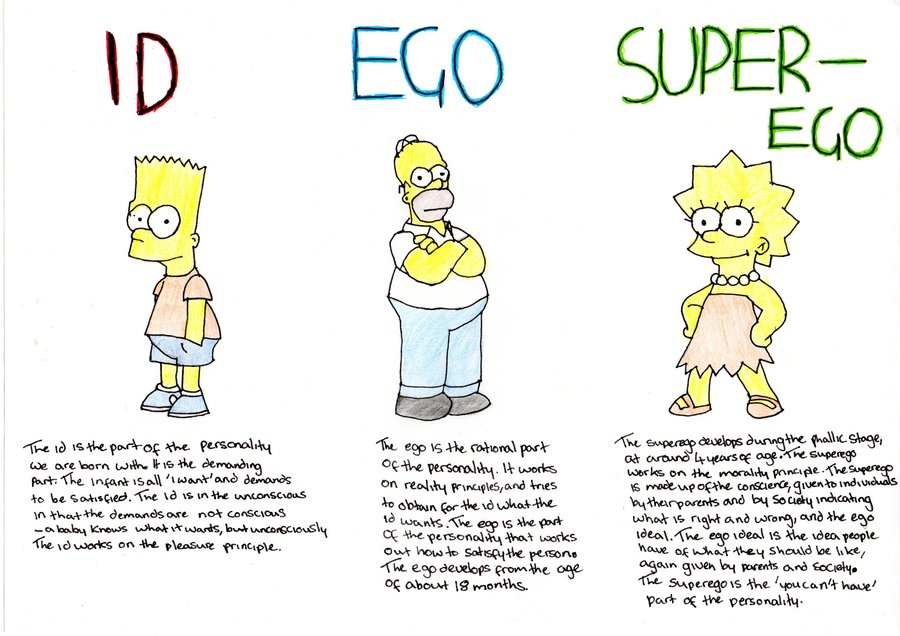 ID
The id is the part of the personality
we are born with. It is the demanding
part. The infant is all 'I want' and demands
to be satisfied. The id is in the unconscious
in that the demands are not conscious
– a baby knows what it wants, but unconsciously
The id works on the pleasure principle.
EGO
The ego is the rational part
of the personality. It works
on reality principles, and tries
to obtain for the id what the
id wants. The ego is the part
of the personality that works
out how to satisfy the person.
The ego develops from the age
of about 18 months.
SUPER–
EGO
The superego develops during the phallic stage,
at around 4 years of age. The superego
works on the morality principle. The superego
is made up of the conscience, given to individuals
by their parents and by society indicating
what is right and wrong, and the ego
ideal. The ego ideal is the idea people
have of what they should be like,
again given by parents and society.
The superego is the 'you can't have'
part of the personality.